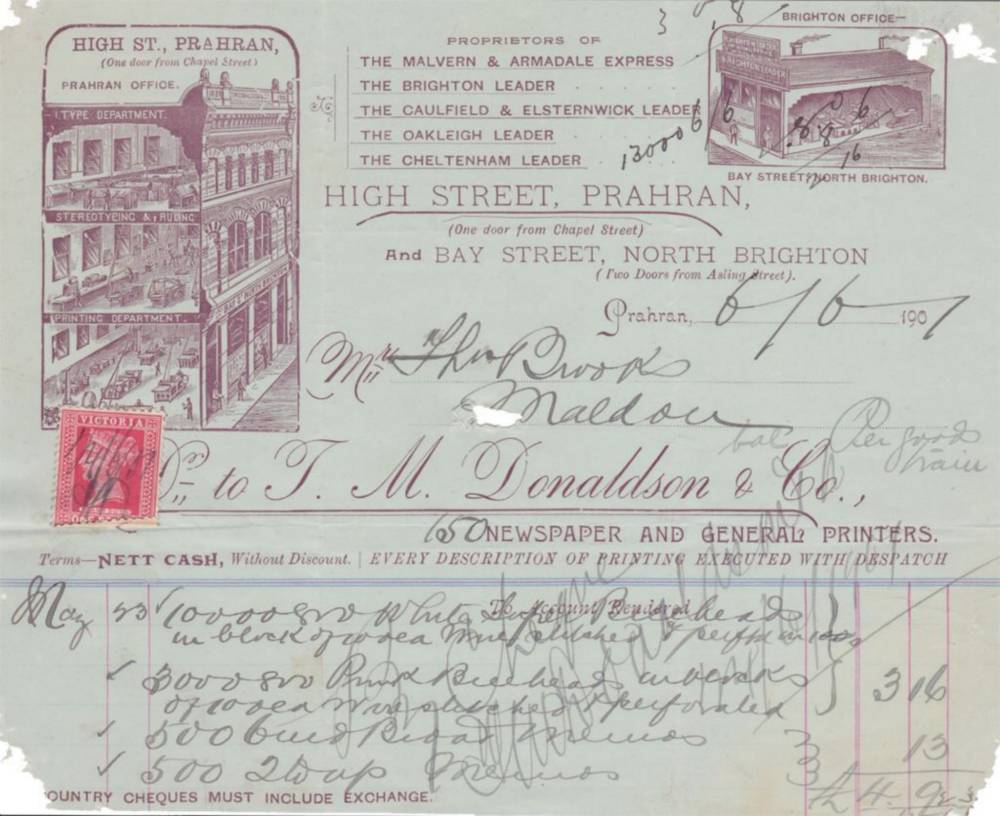 HIGH ST., PRAHRAN,
(One door from Chapel Street)
PRAHRAN OFFICE.
TYPE DEPARTMENT.
STEREOTYPING & RULING
PRINTING DEPARTMENT.
PROPRIETORS OF
THE MALVERN & ARMADALE EXPRESS
THE BRIGHTON LEADER
THE CAULFIELD & ELSTERNWICK LEADER
THE OAKLEIGH LEADER
THE CHELTENHAM LEADER
13000
BRIGHTON OFFICE—
BRIGHTON LEADER
BAY STREET, NORTH BRIGHTON.
HIGH STREET, PRAHRAN,
(One door from Chapel Street)
And BAY STREET, NORTH BRIGHTON
(Two Doors from Asling Street).
Prahran, 6/6 1907
Mr Thos Brooks
Maldon
Per goods
train
VICTORIA
Dr. to T. M. Donaldson & Co.,
650
NEWSPAPER AND GENERAL PRINTERS.
Terms—NETT CASH, Without Discount. | EVERY DESCRIPTION OF PRINTING EXECUTED WITH DESPATCH
To Account Rendered
May 23 10000 8vo White Billheads
in block of 100 ea Wire stitched & perf'd
3000 8vo Pink Billheads in blocks
of 100 ea Wire stitched & perforated 3 16
500 Broad Memos
500 2 to up Memos 13
£4. 9
COUNTRY CHEQUES MUST INCLUDE EXCHANGE.